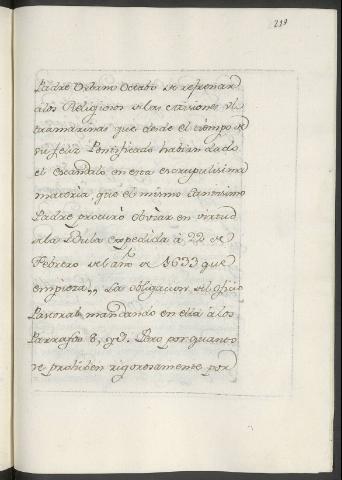 239
Padre Urbano Octabo de refrenar
a los Religiosos de las misiones Vl
tramarinas que desde el tiempo de
su feliz Pontificado habian dado
el escandalo en esta escrupulisima
materia, que el mismo Santissimo
Padre procurò obviar en virtud
de la Bula expedida à 22 de
Febrero del año de 1633 que
empieza,, La obligacion del oficio
Pastoral, mandando en ella à los
Parrafos 8, y 9. Pero por quanto
se prohiben rigorosamente por